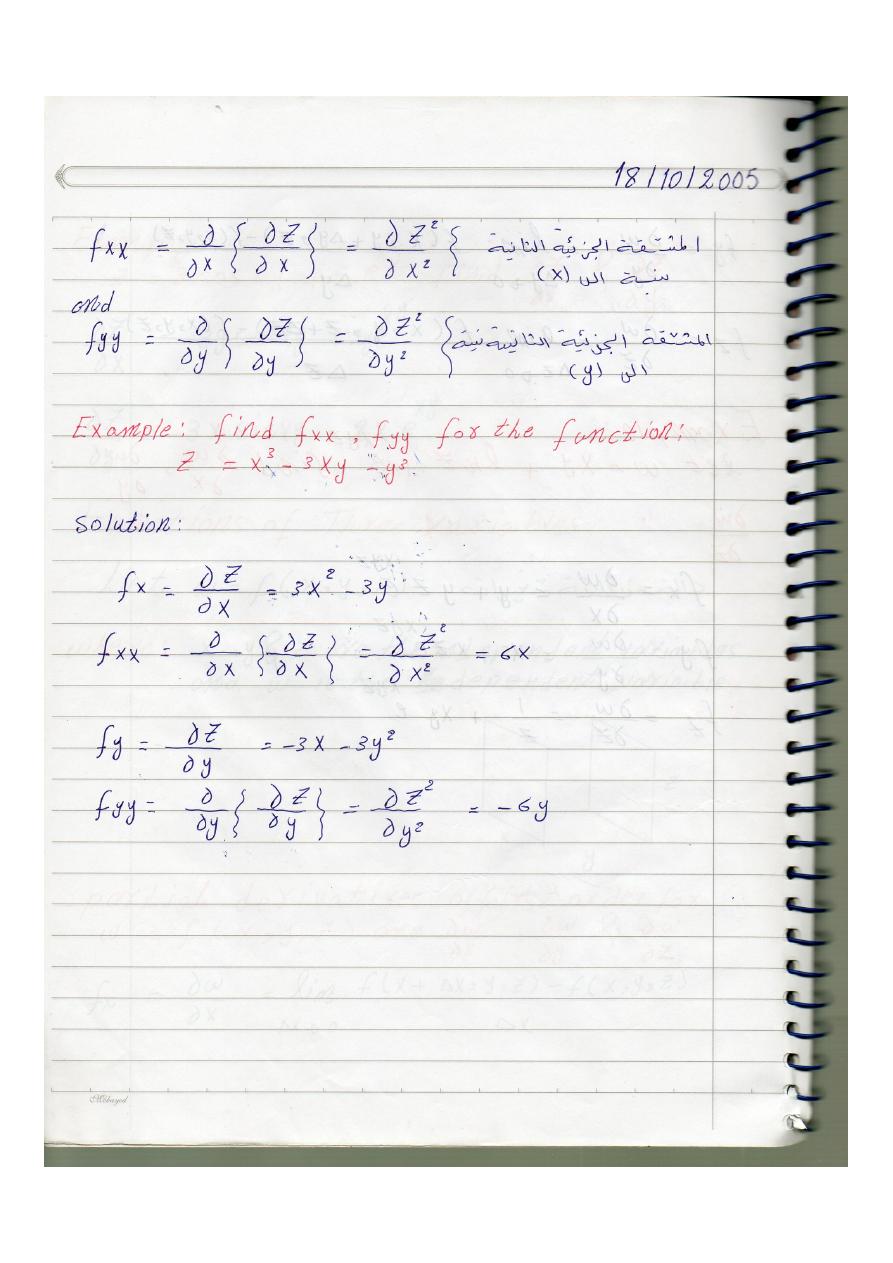 18/10/2005
fxx = ∂/∂x {∂Z/∂x} = ∂Z²/∂x² } المشتقة الجزئية الثانية
نسبة الى (x)
and
fyy = ∂/∂y {∂Z/∂y} = ∂Z²/∂y² } المشتقة الجزئية الثانية نسبة
الى (y)
Example: find fxx , fyy for the function:
Z = x³ - 3xy - y³
Solution:
fx = ∂Z/∂x = 3x² - 3y
fxx = ∂/∂x {∂Z/∂x} = ∂Z²/∂x² = 6x
fy = ∂Z/∂y = -3x - 3y²
fyy = ∂/∂y {∂Z/∂y} = ∂Z²/∂y² = -6y